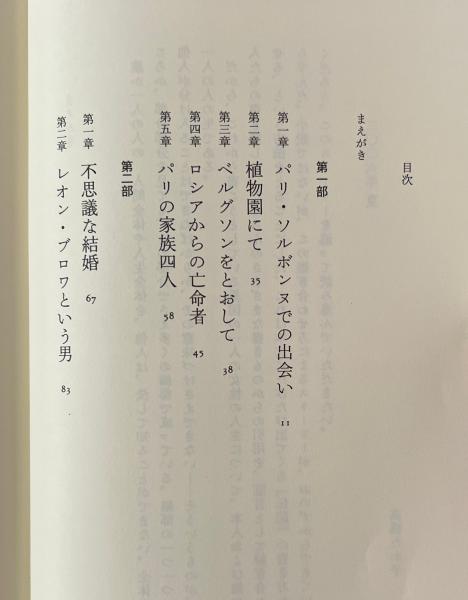 目次
まえがき
第一部
第一章 パリ・ソルボンヌでの出会い 11
第二章 植物園にて 35
第三章 ベルグソンをとおして 38
第四章 ロシアからの亡命者 45
第五章 パリの家族四人 58
第二部
第一章 不思議な結婚 67
第二章 レオン・ブロワという男 83